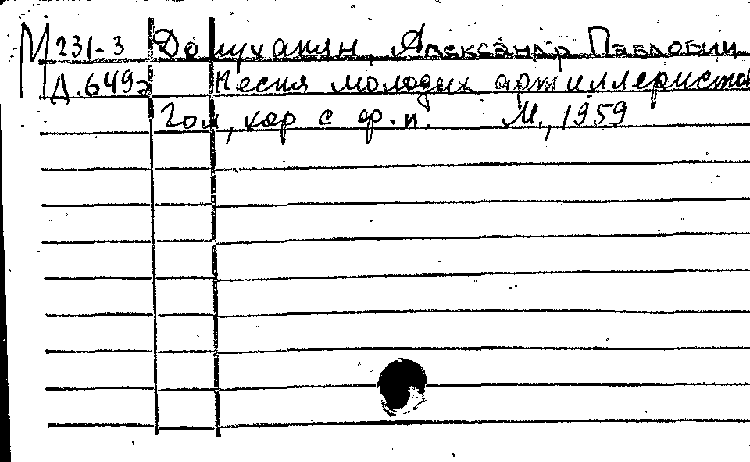 М 231-3 Долуханян, Александр Павлович
Д.649э Песня молодых артиллеристов
Гол, хор с ф.п. М., 1959